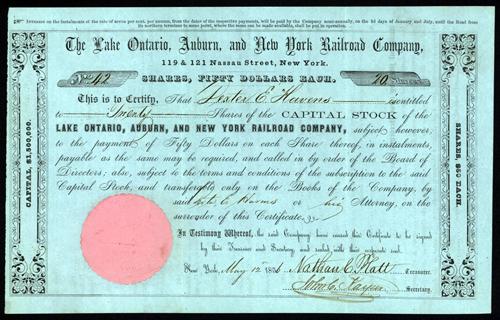 Interest on the instalments at the rate of seven per cent. per annum, from the dates of the respective payments, will be paid by the Company semi-annually, on the 1st days of January and July, until the Road from
its northern terminus to some point, where the same can be made available, shall be put in operation.
The Lake Ontario, Auburn, and New York Railroad Company,
119 & 121 Nassau Street, New York.
No. 42
SHARES, FIFTY DOLLARS EACH.
20 Shares
This is to Certify, That Dexter E. Havens is entitled
to Twenty Shares of the CAPITAL STOCK of the
LAKE ONTARIO, AUBURN, AND NEW YORK RAILROAD COMPANY, subject however,
to the payment of Fifty Dollars on each Share thereof, in instalments,
payable as the same may be required, and called in by order of the Board of
Directors; also, subject to the terms and conditions of the subscription to the said
Capital Stock, and transferable only on the Books of the Company, by
said Havens or his Attorney, on the
surrender of this Certificate.
In Testimony Whereof, the said Company have caused this Certificate to be signed
by their Treasurer and Secretary and sealed, with their corporate seal.
New York, May 12 1856 Nathan C. Platt Treasurer.
John C. Secretary.
CAPITAL, $1,500,000.
SHARES, $50 EACH.